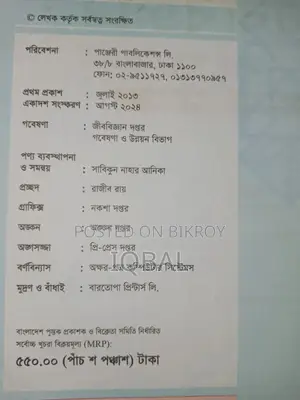 © লেখক কর্তৃক সর্বস্বত্ব সংরক্ষিত
পরিবেশনা : পাঞ্জেরী পাবলিকেশন্স লি.
৩৮/৮ বাংলাবাজার, ঢাকা ১১০০
ফোন: ০২-৯৫১১৭২৭, ০১৩১৩৭৭০৯৫৭
প্রথম প্রকাশ : জুলাই ২০১৩
একাদশ সংস্করণ : আগস্ট ২০২৪
গবেষণা : জীববিজ্ঞান দপ্তর
গবেষণা ও উন্নয়ন বিভাগ
পণ্য ব্যবস্থাপনা
ও সমন্বয় : সাবিকুন নাহার আনিকা
প্রচ্ছদ : রাজীব রায়
গ্রাফিক্স : নকশা দপ্তর
POSTED ON BIKROY
অঙ্কন : অঙ্কন দপ্তর
IQBAL
অঙ্গসজ্জা : প্রি-প্রেস দপ্তর
বর্ণবিন্যাস : অক্ষর-গ্রাফ কম্পিউটার সিস্টেমস
মুদ্রণ ও বাঁধাই : বারতোপা প্রিন্টার্স লি.
বাংলাদেশ পুস্তক প্রকাশক ও বিক্রেতা সমিতি নির্ধারিত
সর্বোচ্চ খুচরা বিক্রয়মূল্য (MRP):
৫৫০.০০ (পাঁচ শ পঞ্চাশ) টাকা